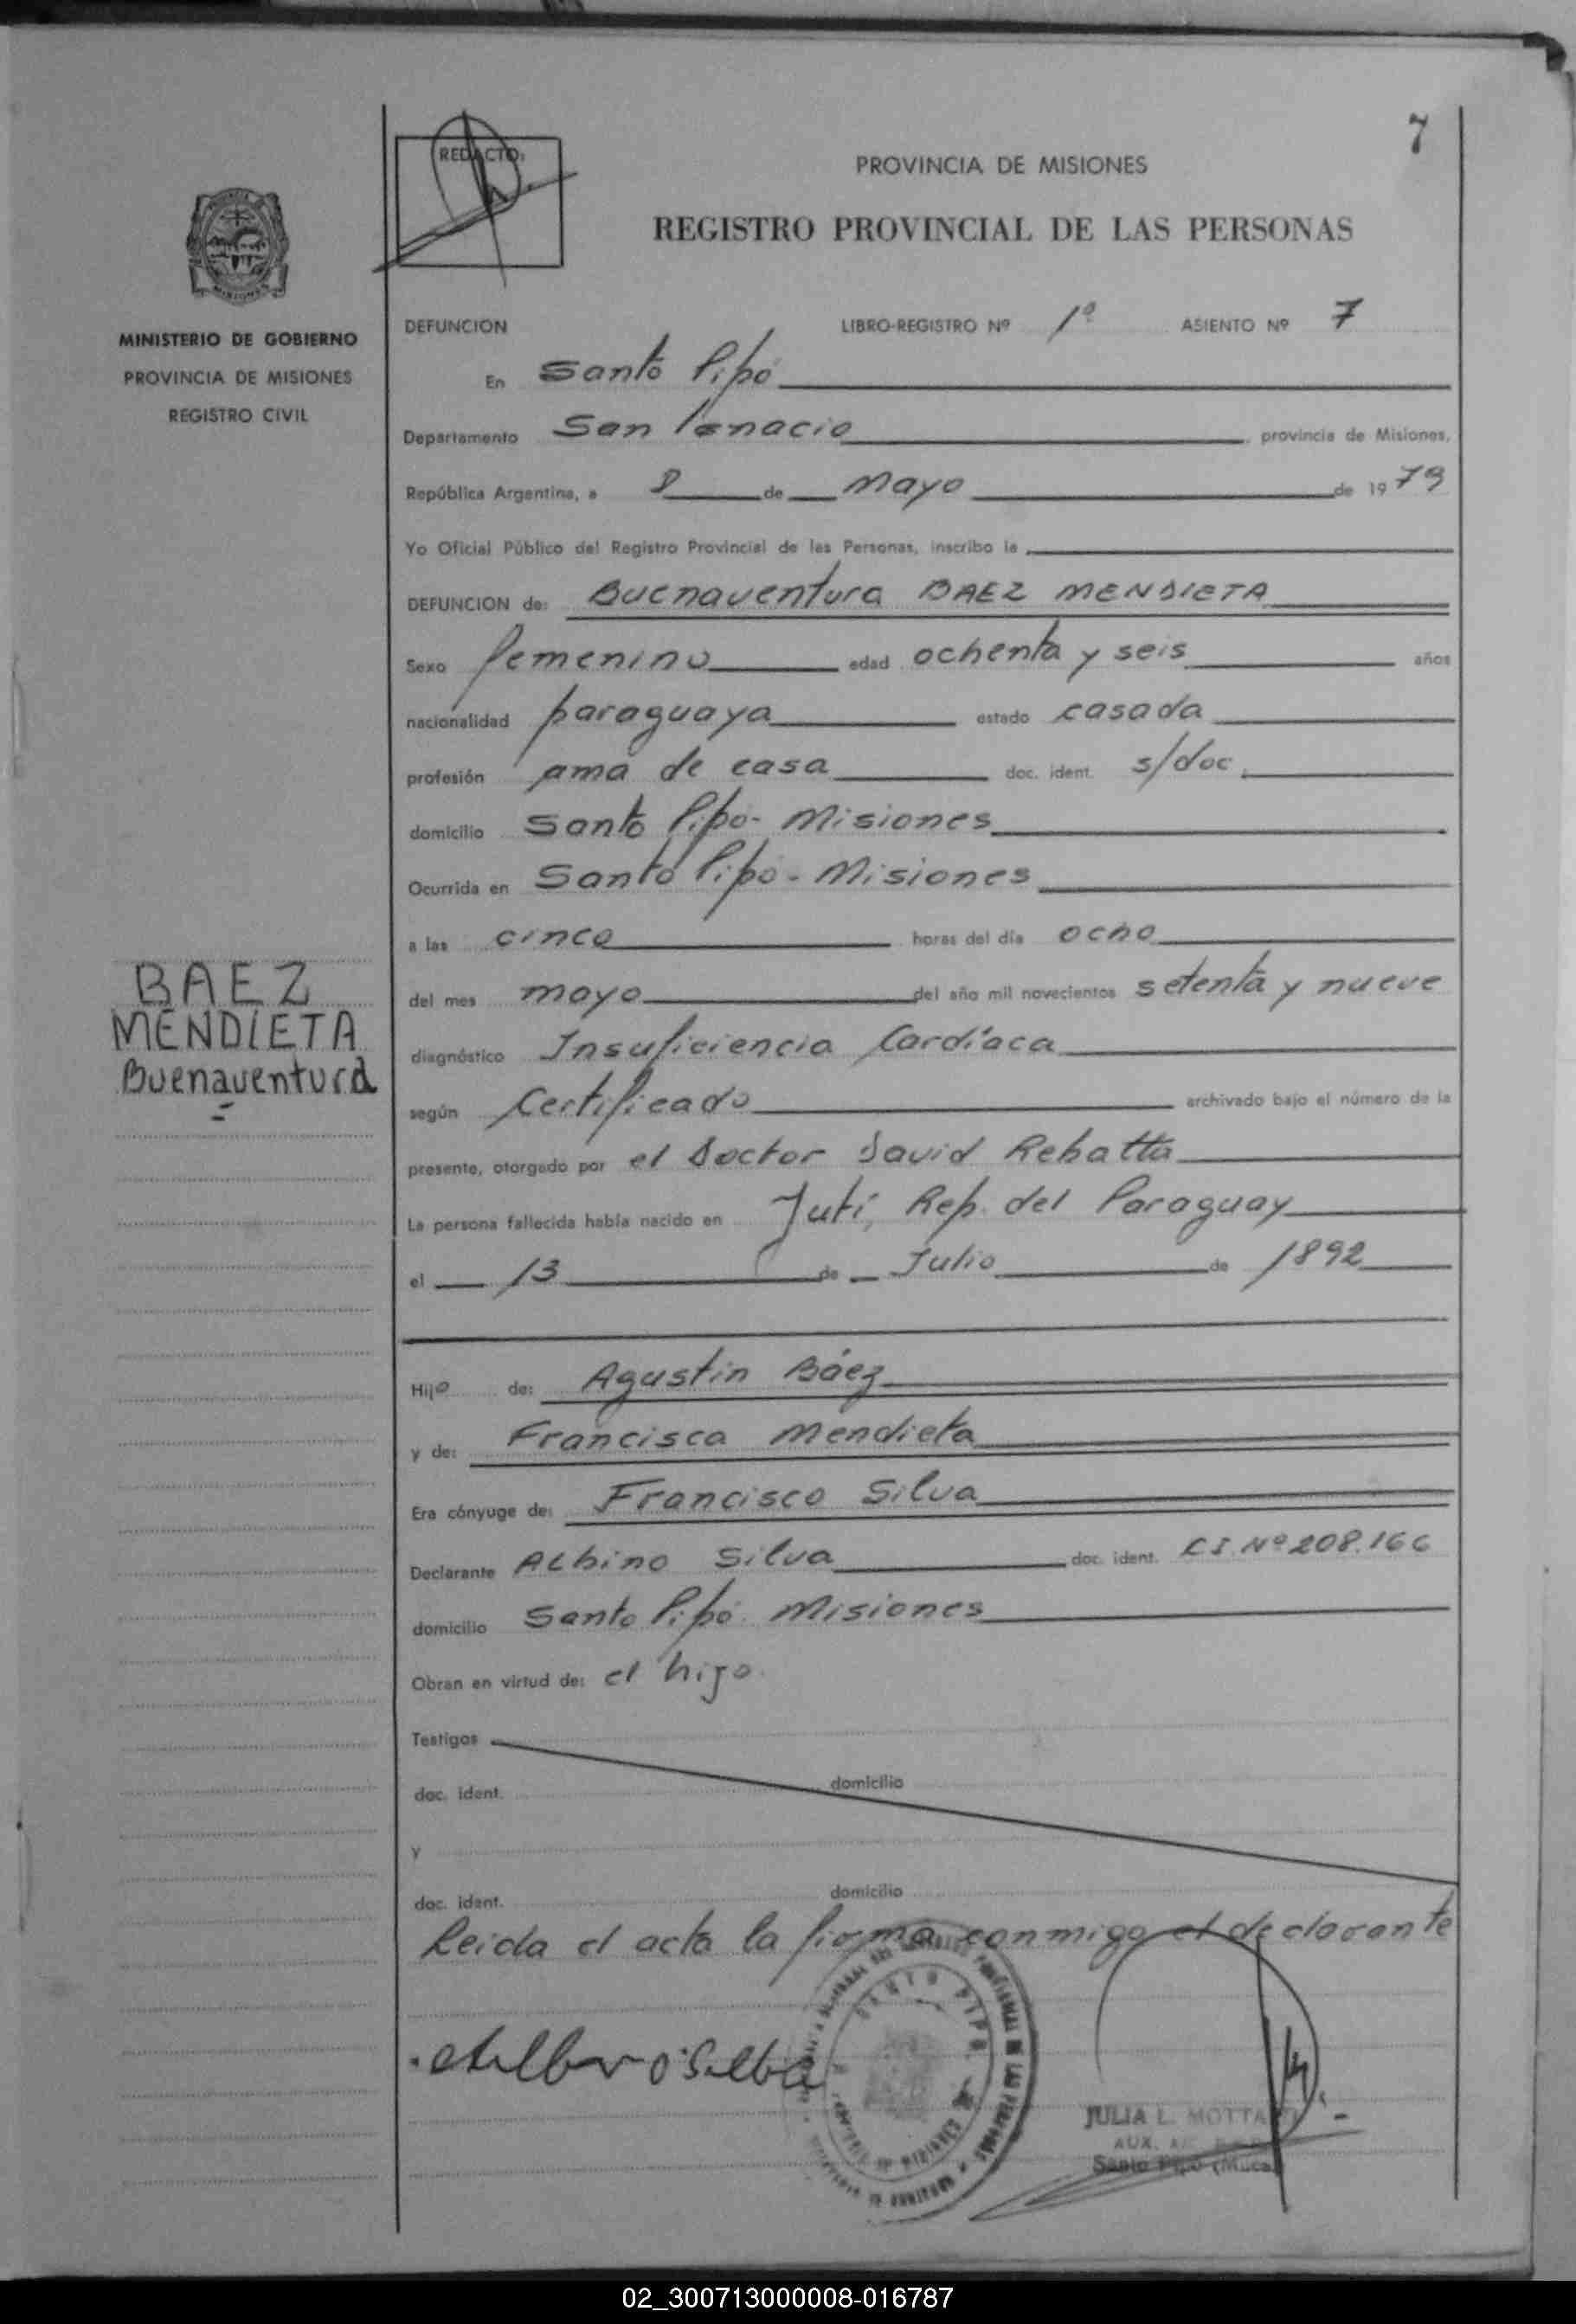 7
REDACTO:
PROVINCIA DE MISIONES
REGISTRO PROVINCIAL DE LAS PERSONAS
MINISTERIO DE GOBIERNO
PROVINCIA DE MISIONES
REGISTRO CIVIL
DEFUNCION LIBRO-REGISTRO Nº 1º ASIENTO Nº 7
En Santo Pipó
Departamento San Ignacio, provincia de Misiones,
República Argentina, a 8 de Mayo de 1979
Yo Oficial Público del Registro Provincial de las Personas, inscribo la
DEFUNCION de: Buenaventura BAEZ MENDIETA
Sexo femenino edad ochenta y seis años
nacionalidad paraguaya estado casada
profesión ama de casa doc. ident. s/doc.
domicilio Santo Pipó - Misiones
Ocurrida en Santo Pipó - Misiones
a las cinco horas del día ocho
del mes mayo del año mil novecientos setenta y nueve
diagnóstico Insuficiencia Cardíaca
según Certificado archivado bajo el número de la
presente, otorgado por el Doctor David Rebatta
La persona fallecida había nacido en Juti, Rep. del Paraguay
el 13 de Julio de 1892
BAEZ
MENDIETA
Buenaventura
Hijo de: Agustin Báez
y de: Francisca Mendieta
Era cónyuge de: Francisco Silva
Declarante Albino Silva doc. ident. C.I. Nº 208.166
domicilio Santo Pipó Misiones
Obran en virtud de: el hijo.
Testigos
doc. ident. domicilio
y
doc. ident. domicilio
Leida el acta la firma conmigo el declarante
SANTO PIPO
JULIA L.
AUX.
Santo Pipó
02_300713000008-016787